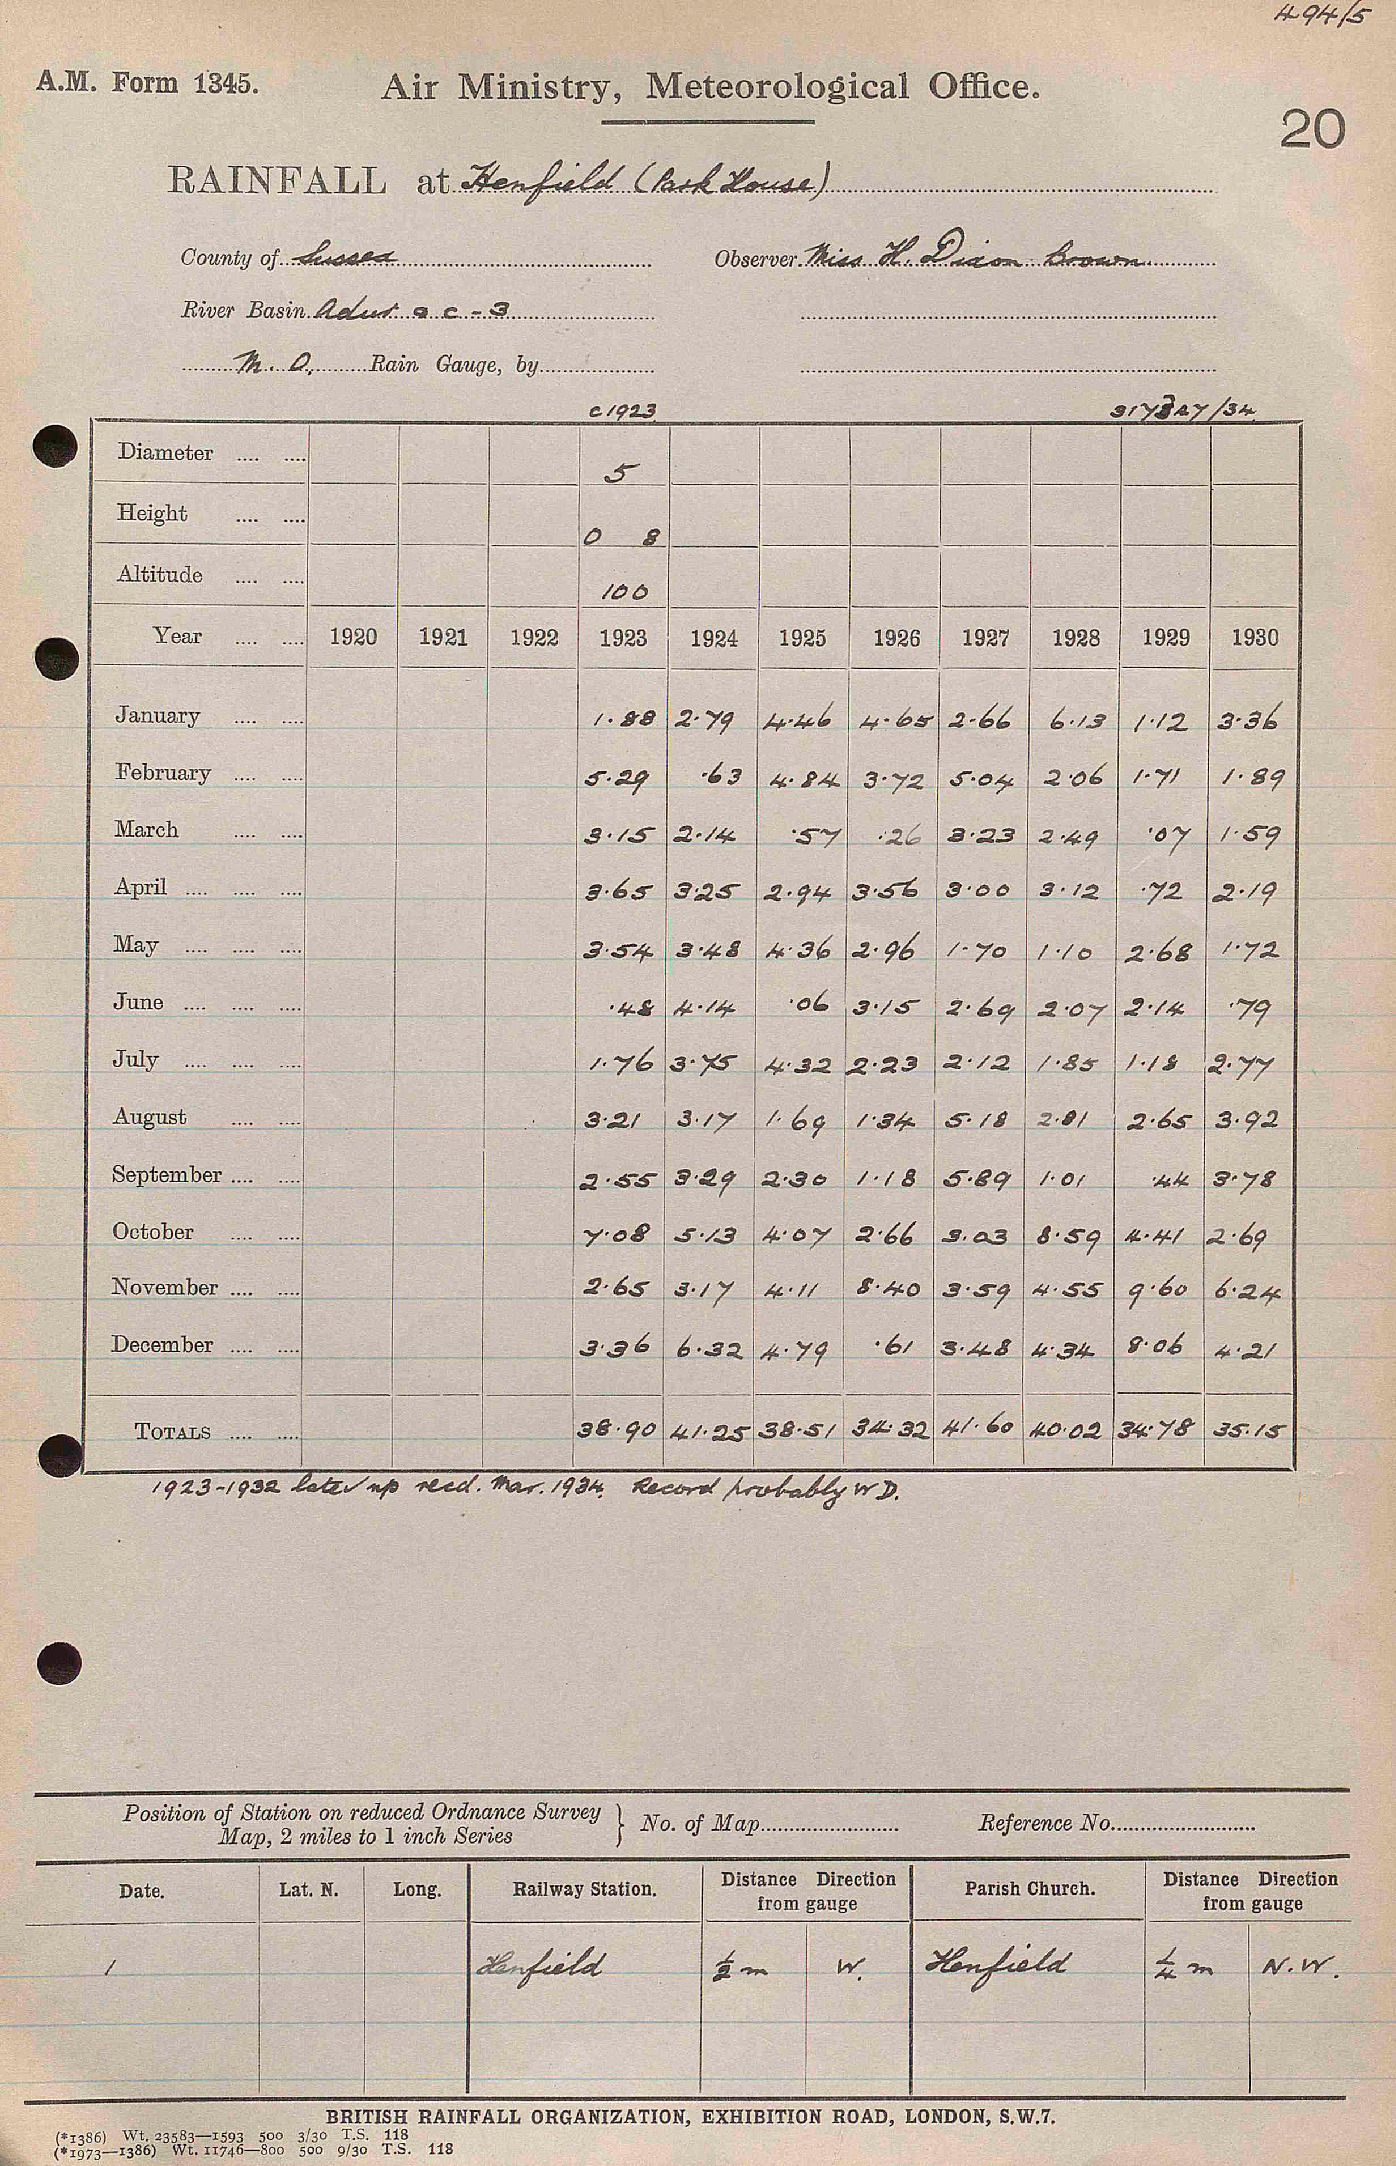 494/5
A.M. Form 1345. Air Ministry, Meteorological Office.
20
RAINFALL at Henfield (Park House)
County of Sussex Observer Miss H. Dixon Brown
River Basin Adur a c - 3
M. O. Rain Gauge, by
c 1923 /34
Diameter .... .... 5
Height .... .... 0 8
Altitude .... .... 100
Year .... .... 1920 1921 1922 1923 1924 1925 1926 1927 1928 1929 1930
January .... .... 1.88 2.79 4.46 4.65 2.66 6.13 1.12 3.36
February .... .... 5.29 .63 4.84 3.72 5.04 2.06 1.71 1.89
March .... .... 3.15 2.14 .57 .26 3.23 2.49 .07 1.59
April .... .... .... 3.65 3.25 2.94 3.56 3.00 3.12 .72 2.19
May .... .... .... 3.54 3.48 4.36 2.96 1.70 1.10 2.68 1.72
June .... .... .... .48 4.14 .06 3.15 2.69 2.07 2.14 .79
July .... .... .... 1.76 3.75 4.32 2.23 2.12 1.85 1.18 2.77
August .... .... 3.21 3.17 1.69 1.34 5.18 2.81 2.65 3.92
September .... .... 2.55 3.29 2.30 1.18 5.89 1.01 .44 3.78
October .... .... 7.08 5.13 4.07 2.66 3.03 8.59 4.41 2.69
November .... .... 2.65 3.17 4.11 8.40 3.59 4.55 9.60 6.24
December .... .... 3.36 6.32 4.79 .61 3.48 4.34 8.06 4.21
TOTALS .... .... 38.90 41.25 38.51 34.32 41.60 40.02 34.78 35.15
1923-1932 recd. Mar. 1934. Record probably W D.
Position of Station on reduced Ordnance Survey
Map, 2 miles to 1 inch Series } No. of Map Reference No.
Date. Lat. N. Long. Railway Station. Distance Direction from gauge Parish Church. Distance Direction from gauge
1 Henfield ½ m W. Henfield ¼ m N.W.
BRITISH RAINFALL ORGANIZATION, EXHIBITION ROAD, LONDON, S.W.7.
(*1386) Wt. 23583—1593 500 3/30 T.S. 118
(*1973—1386) Wt. 11746—800 500 9/30 T.S. 118